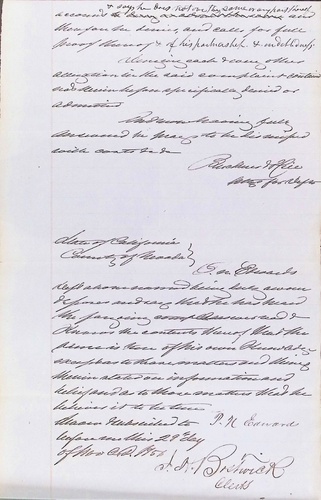 & says he does not owe the same or any part thereof
account & and
therefore he denies, and calls for full
proof thereof & of his partnership & indebtedness
Denying each & every other
allegation in the said complaint contained
not herein before specifically denied or
admitted
And now having fully
answered he prays to be dismissed
with costs &c
Attys for Deft
State of California
County of
P. N. Edwards
Deft above named being duly sworn
deposes and says that he has heard
the foregoing answer read &
knows the contents thereof that the
same is true of his own knowledge
except as to those matters and things
therein stated on information and
belief and as to those matters that he
believes it to be true
P. N. Edwards
Sworn & subscribed to
before me this 29 day
of Nov A.D. 1856
Bostwick
Clerk